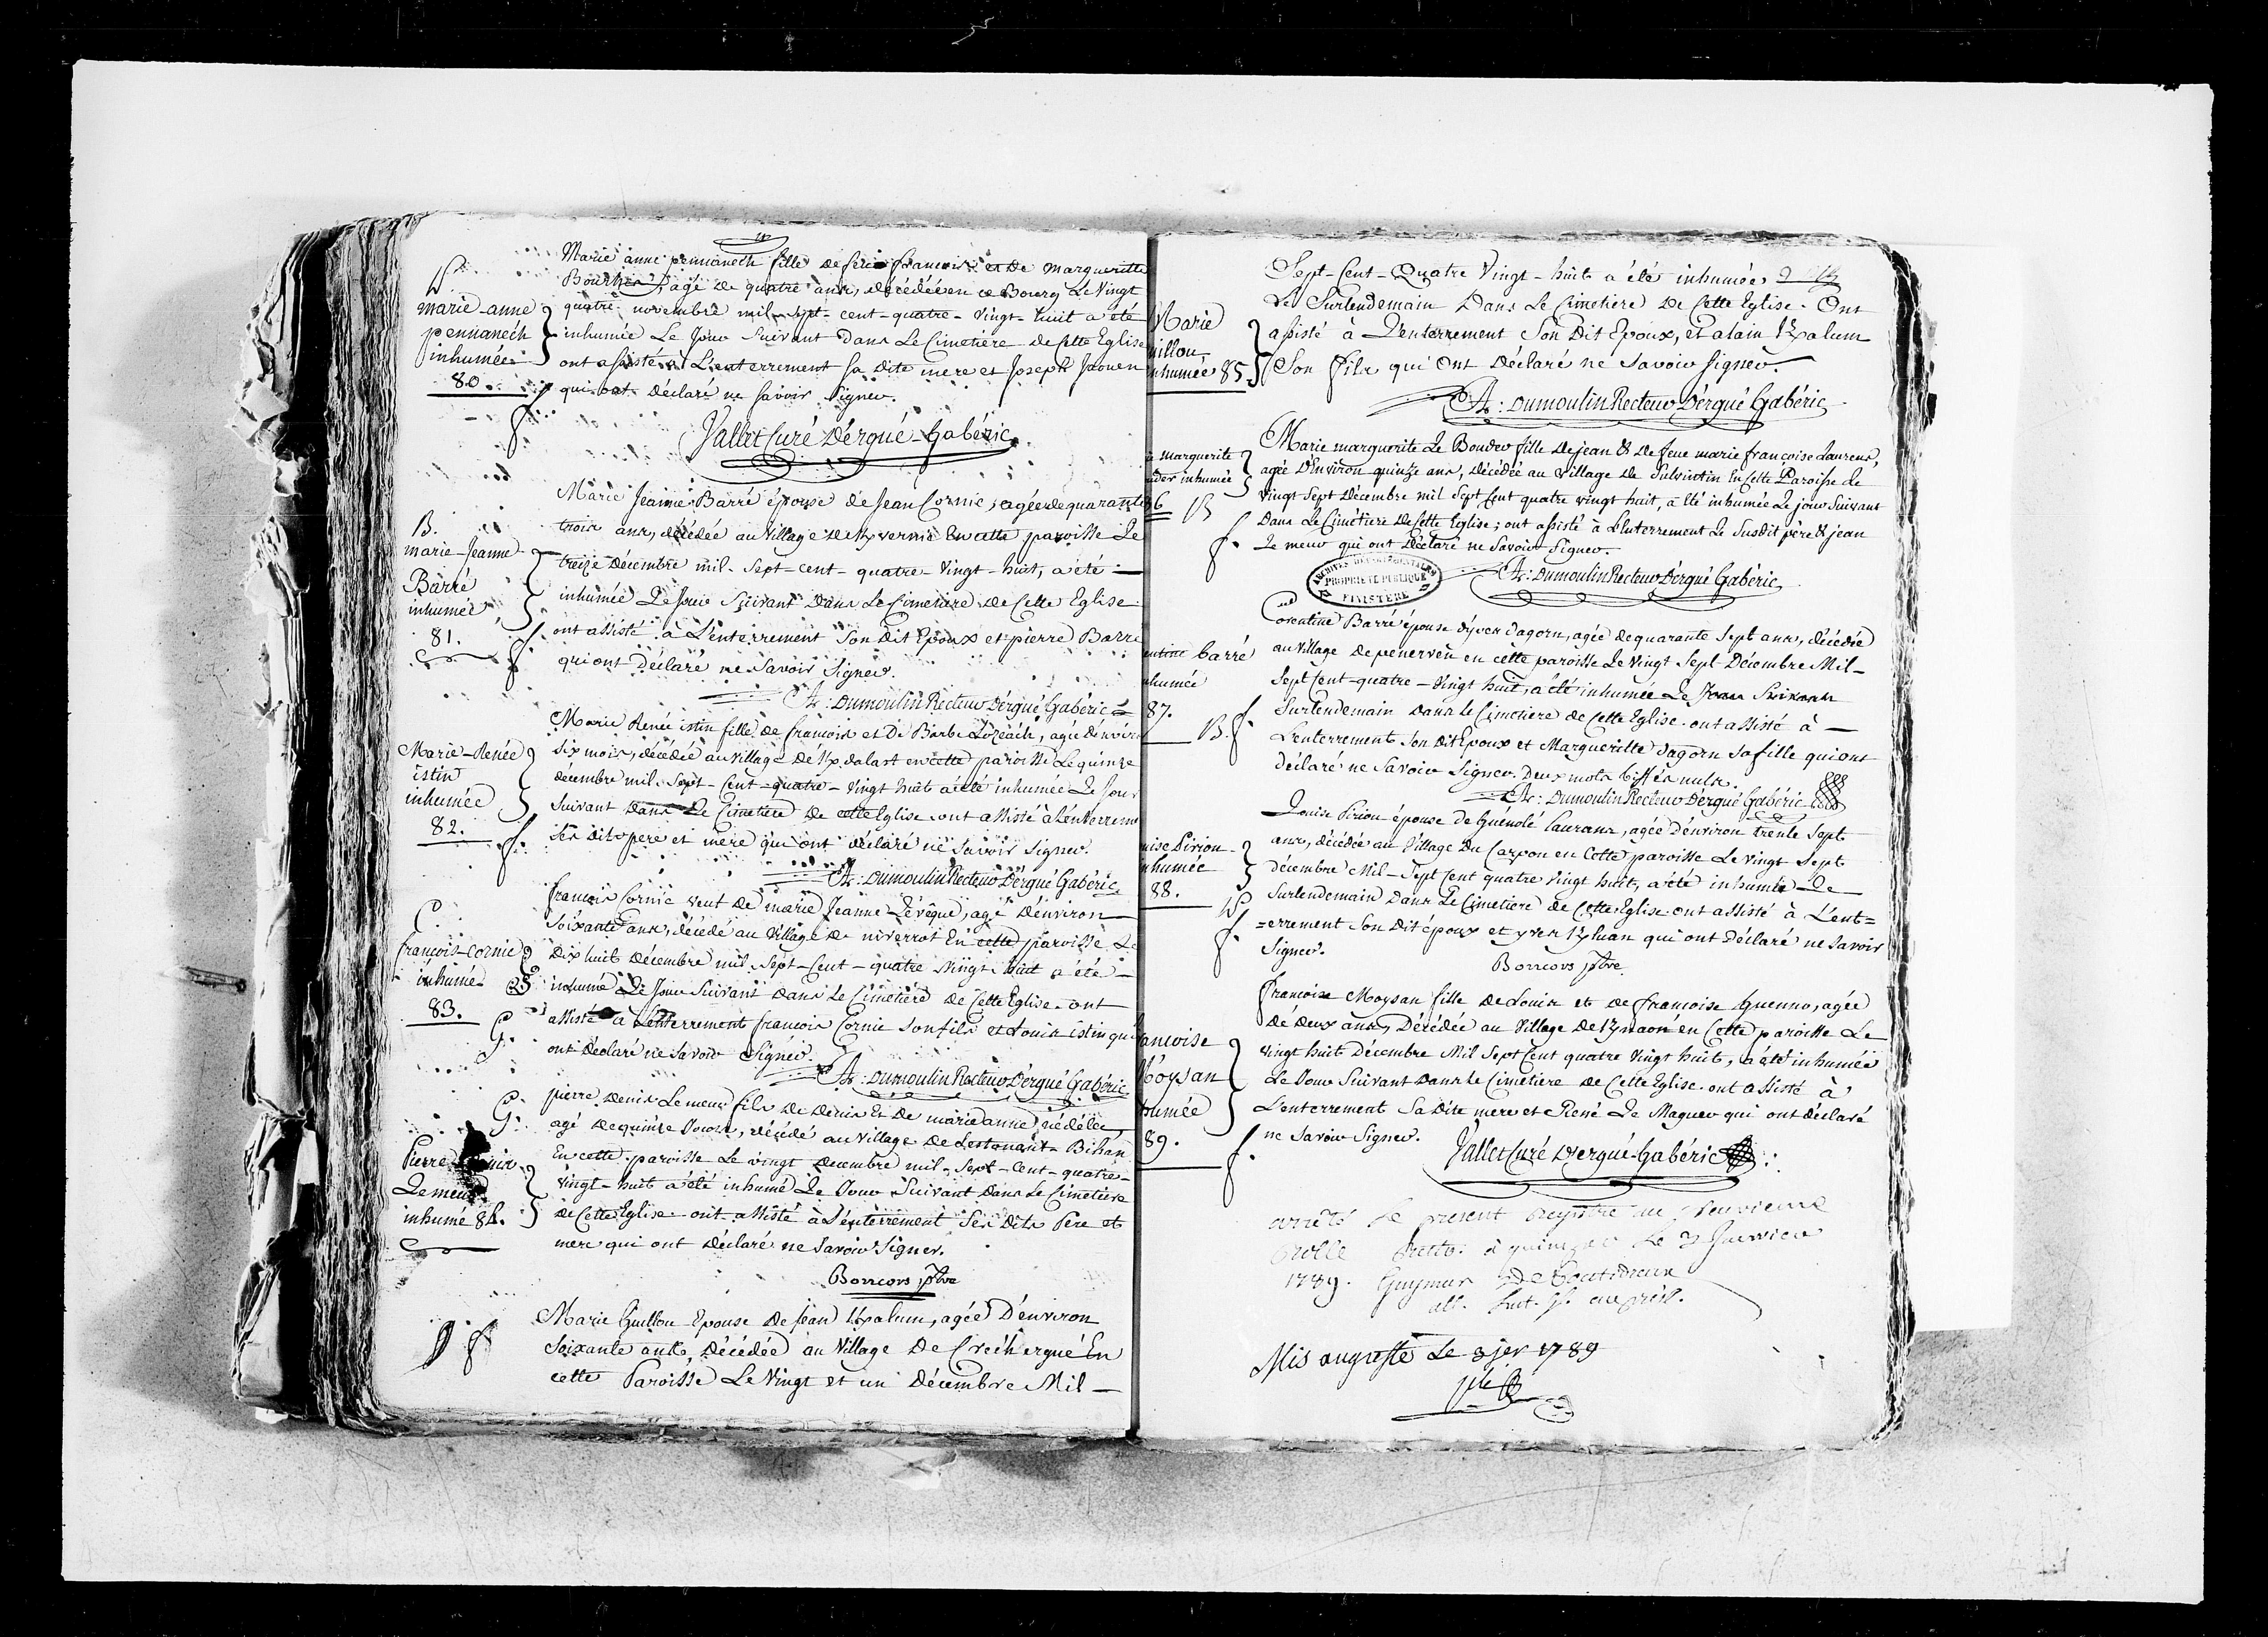 Marie anne pennanech fille de feu francois et de margueritte
Bourhis agé de quatre ans, décédée en ce Bourg Le Vingt
quatre novembre mil-sept-cent-quatre-vingt-huit a été
inhumée Le Jour Suivant Dans Le Cimetière de Cette Eglise
ont assisté à L'enterrement sa dite mere et Joseph Jaouen
qui ont déclaré ne savoir signer.
marie-anne
pennanech
inhumée
80.
Vallet Curé D'ergué-Gabéric
Marie Jeanne Barré épouse de Jean Cornic, agée de quarante
trois ans, décédée au Village de Kvernic En cette paroisse Le
treize décembre mil-sept-cent-quatre-vingt-huit, a été
inhumée Le Jour Suivant Dans Le Cimetiere de Cette Eglise
ont assisté à L'enterrement Son Dit Epoux et pierre Barre
qui ont Déclaré ne Savoir Signer.
B.
marie-Jeanne
Barré
inhumée
81.
A: Dumoulin Recteur D'ergué Gabéric
Marie Renée istin fille de francois et De Barbe Lozeach, agée d'environ
six mois, décédée au Village de K/dalast en cette paroisse Le quinze
décembre mil-Sept-Cent-quatre-Vingt huit a été inhumée Le Jour
Suivant Dans Le Cimetiere De cette Eglise ont assisté à L'enterrem
Ses Dits pere et mere qui ont déclaré ne savoir signer.
Marie-Renée
istin
inhumée
82.
A: Dumoulin Recteur D'ergué Gabéric
francois Cornic veuf de marie Jeanne Levêque, agé D'environ
Soixante ans, décédé au Village de niverrot En cette paroisse Le
Dix huit Décembre mil-Sept-Cent-quatre Vingt huit a été
inhumé Le Jour Suivant Dans Le Cimetiere De Cette Eglise ont
assisté a L'enterrement francois Cornic son fils et Louis istin qui
ont déclaré ne savoir Signer.
francois-Cornic
inhumé
83.
G.
A: Dumoulin Recteur D'ergué Gabéric
pierre denis Lemeur fils De Denis Et De marie anne nédélec
agé de quinze Jours, décédé au Village de Lestonant-Bihan
En cette paroisse Le vingt Decembre mil-Sept-Cent-quatre-
Vingt-huit a été inhumé Le Jour Suivant Dans Le Cimetière
de Cette Eglise ont assisté à L'enterrement Ses Dits Pere et
mere qui ont déclaré ne Savoir Signer.
G.
Pierre
Lemeur
inhumé 84.
Borreors ptre
Marie Guillou Epouse De Jean K/alum, agée D'environ
Soixante ans, Décédée au Village De Crech ergué En
cette Paroisse Le Vingt et un Décembre Mil-
Sept-Cent-Quatre Vingt-huit a été inhumée
Le Surlendemain Dans Le Cimetiere De Cette Eglise. Ont
assisté à L'enterrement Son Dit Epoux, et alain K/alum
Son fils qui Ont Déclaré ne Savoir signer.
Marie
uillou
nhumée 85.
A: Dumoulin Recteur D'ergué Gabéric
Marie marguerite Le Bouder fille De jean & De feue marie francoise Laurens,
agée D'Environ quinze ans, décédée au village De Sulvintin En Cette Paroisse Le
Vingt Sept Décembre mil Sept Cent quatre vingt huit, a été inhumée Le jour Suivant
Dans Le Cimétiere De Cette Eglise; ont assisté à L'Enterrement Le Susdit père & jean
Le meur qui ont Déclaré ne Savoir Signer.
marguerite
uder inhumée
86 B
ARCHIVES DÉPARTEMENTALES
PROPRIÉTÉ PUBLIQUE
FINISTERE
A: Dumoulin Recteur D'ergué Gabéric
Corentine Barré épouse d'yves Dagorn, agée de quarante Sept ans, décédée
au Village de penerven en cette paroisse Le Vingt Sept Décembre Mil-
Sept Cent-quatre-Vingt huit, a été inhumée Le Jour Suivant
Surlendemain Dans le Cimetiere de Cette Eglise. ont assisté à
L'enterrement Son Dit Epoux et Margueritte Dagorn Sa fille qui ont
déclaré ne Savoir Signer. Deux mots biffés nuls.
entine barré
nhumée
87.
B.
A: Dumoulin Recteur D'ergué Gabéric
Louise Pirion épouse de Guénolé Laurans, agée D'environ trente Sept
ans, décédée au Village Du Carpon en Cette paroisse Le vingt Sept
décembre Mil-Sept Cent quatre Vingt huit, a été inhumée Le
Surlendemain Dans Le Cimetiere de Cette Eglise ont assisté à L'ent=
=errement Son Dit époux et yves K/luan qui ont Déclaré ne Savoir
Signer.
uise Pirion
nhumée
88.
Borreors ptre
francoise Moysan fille De Louis et de francoise Guenno, agée
De deux ans, Décédée au Village De K/naon en Cette paroisse Le
vingt huit Décembre Mil Sept Cent quatre Vingt huit, a été inhumée
Le Jour Suivant Dans Le Cimetiere De Cette Eglise. ont assisté à
L'enterrement Sa Dite mere et René Le Maguer qui ont Déclaré
ne Savoir Signer.
ancoise
Moysan
humée
89.
Vallet Curé D'ergué-Gabéric
arrêté le present Registre au neuvieme
Rolle à quimper le 2 Janvier
1789.
Mis au greffe Le 3 jer 1789